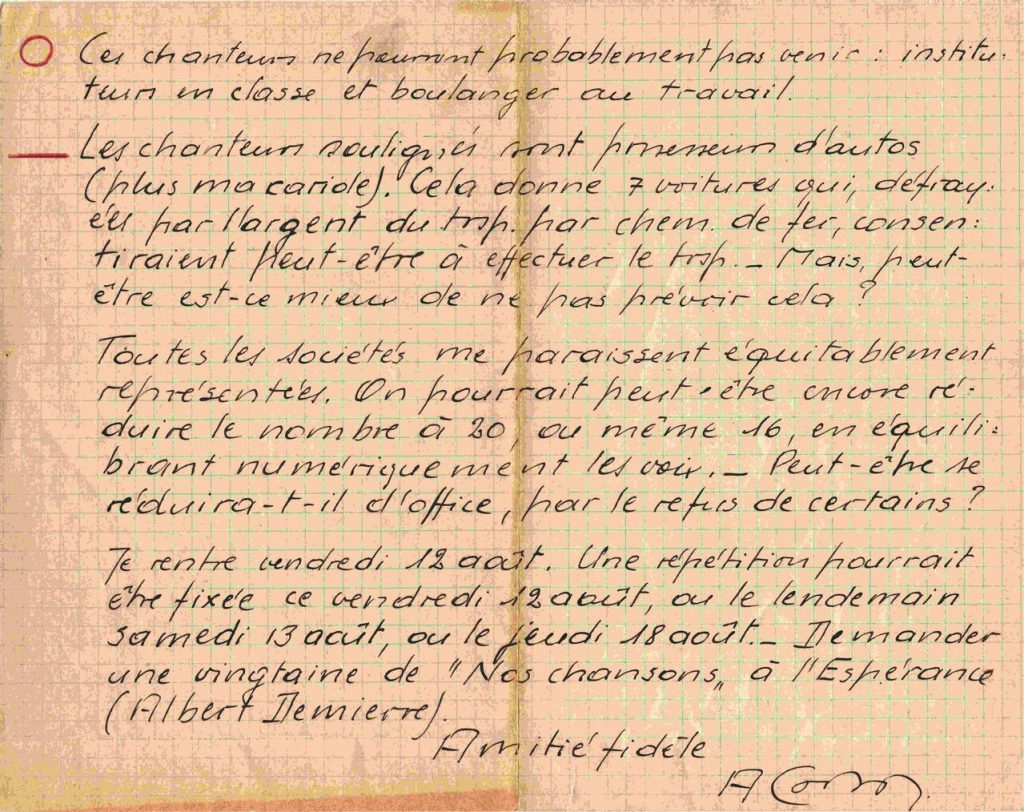 Ces chanteurs ne pourront probablement pas venir : institu-
teurs en classe et boulanger au travail.
Les chanteurs soulignés sont possesseurs d'autos
(plus ma cariole). Cela donne 7 voitures qui, défray-
ées par l'argent du trsp. par chem. de fer, consen-
tiraient peut-être à effectuer le trsp. _ Mais, peut-
être est-ce mieux de ne pas prévoir cela ?
Toutes les sociétés me paraissent équitablement
représentées. On pourrait peut-être encore ré-
duire le nombre à 20, ou même 16, en équili-
brant numériquement les voix. _ Peut-être se
réduira-t-il d'office, par le refus de certains ?
Je rentre vendredi 12 août. Une répétition pourrait
être fixée ce vendredi 12 août, ou le lendemain
samedi 13 août, ou le jeudi 18 août. _ Demander
une vingtaine de "Nos chansons„ à l'Espérance
(Albert Demierre).
Amitié fidèle
A